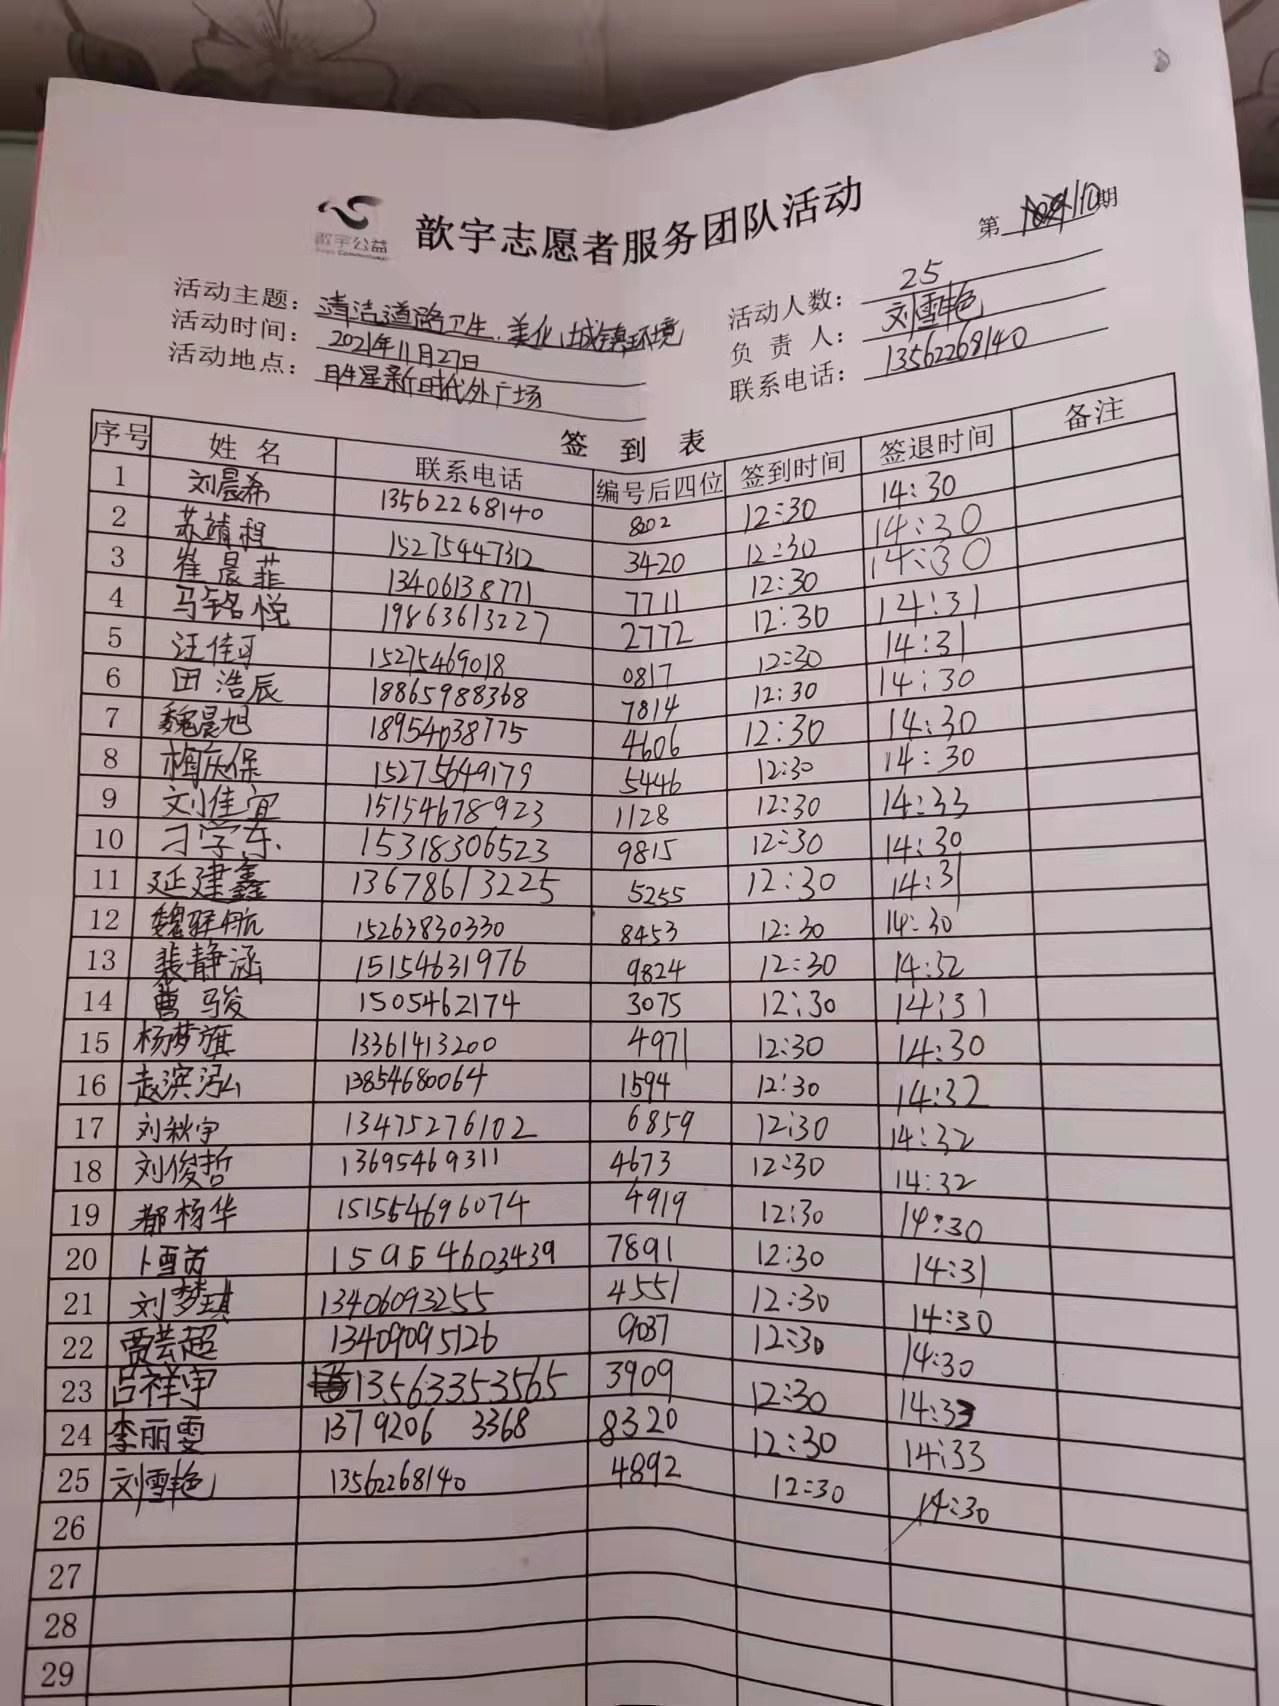 歆宇公益
歆宇志愿者服务团队活动
第 110期
活动主题：清洁道路卫生、美化城镇环境 活动人数：25
活动时间：2021年11月27日 负责人：刘雪艳
活动地点：明星新时代外广场 联系电话：13562268140
签到表
序号 姓名 联系电话 编号后四位 签到时间 签退时间 备注
1 刘晨希 13562268140 8202 12:30 14:30
2 苏靖程 15275447312 3420 12:30 14:30
3 崔晨菲 13406138771 7711 12:30 14:30
4 马铭悦 19863613227 2772 12:30 14:31
5 汪佳可 15275469018 0817 12:30 14:31
6 田浩辰 18865988368 7814 12:30 14:30
7 魏晨旭 18954038775 4606 12:30 14:30
8 梅庆保 15275649179 5446 12:30 14:30
9 刘佳宜 15154678923 1128 12:30 14:33
10 刁学东 15318306523 9815 12:30 14:30
11 延建鑫 13678613225 5255 12:30 14:31
12 魏驿航 15263830330 8453 12:30 14:30
13 裴静涵 15154631976 9824 12:30 14:32
14 曹骏 1505462174 3075 12:30 14:31
15 杨梦旗 13361413200 4971 12:30 14:30
16 赵滨泓 13854680064 1594 12:30 14:32
17 刘秋宇 13475276102 6859 12:30 14:32
18 刘俊哲 13695469311 4673 12:30 14:32
19 都杨华 151554696074 4919 12:30 14:30
20 卜雪芮 15954603439 7891 12:30 14:31
21 刘梦琪 13406093255 4551 12:30 14:30
22 贾芸超 13409095126 9037 12:30 14:30
23 吕祥宇 13563353565 3909 12:30 14:33
24 李丽雯 13792063368 8320 12:30 14:33
25 刘雪艳 13562268140 4892 12:30 14:30
26
27
28
29